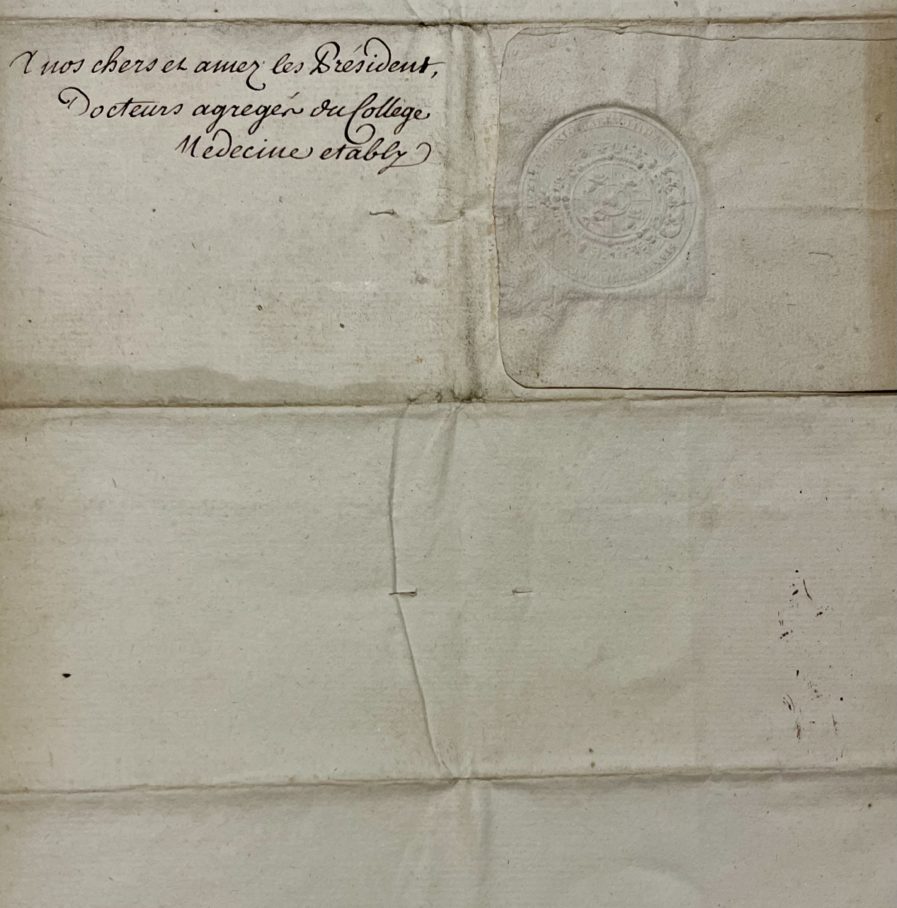 A nos chers et amez les Président,
Docteurs agregés du College
Medecine etably